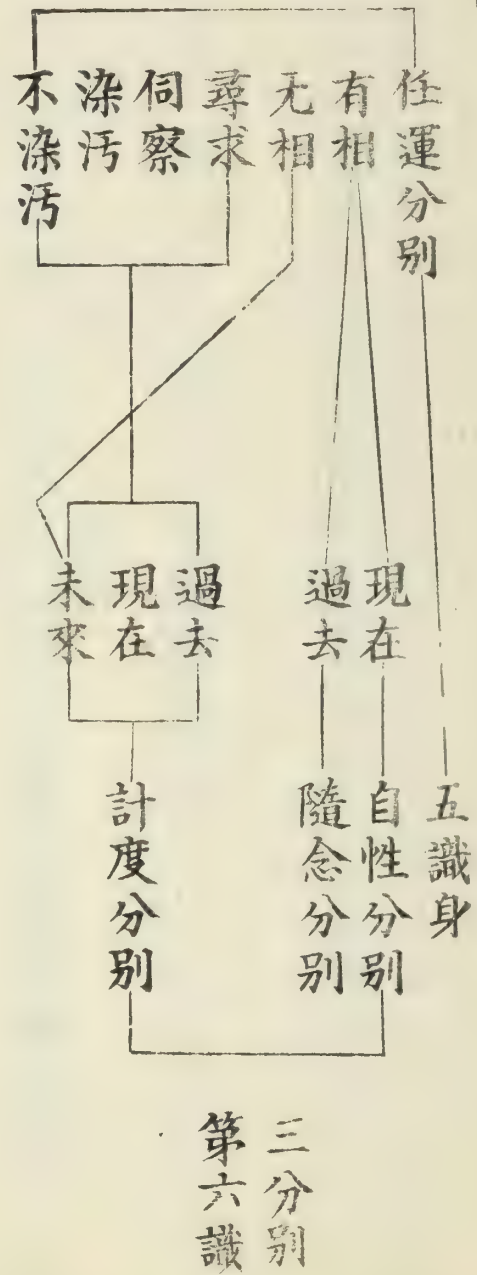 任運分別
有相
无相
尋求
伺察
染汚
不染汚
現在
過去
過去
現在
未來
五識身
自性分別
隨念分別
計度分別
三分別
第六識